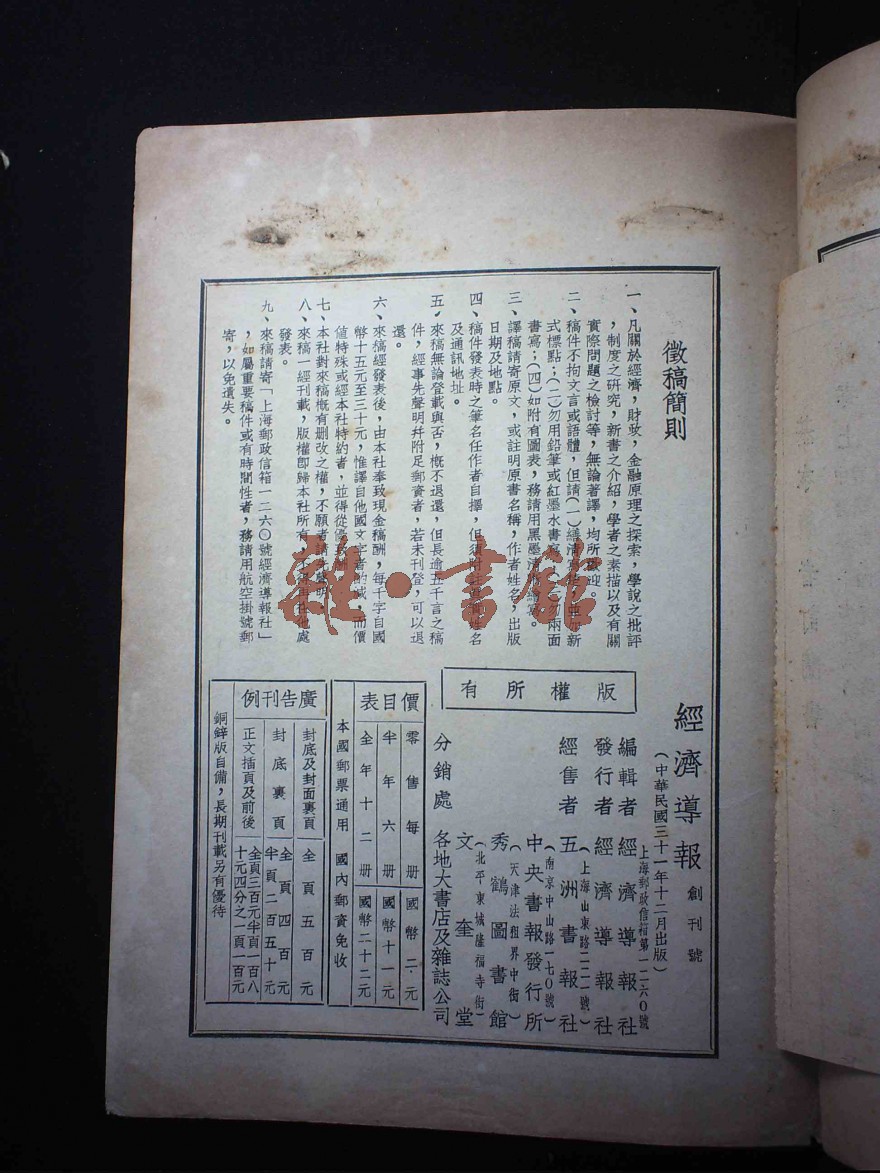 徵稿簡則
一、凡關於經濟，財政，金融原理之探索，學說之批評
，制度之研究，新書之介紹，學者之素描以及有關
實際問題之檢討等，無論著譯，均所歡迎。
二、稿件不拘文言或語體，但請(一)繕清
新
式標點；(二)勿用鉛筆或紅墨水書寫
勿兩面
書寫；(四)如附有圖表，務請用黑墨
三、譯稿請寄原文，或註明原書名稱，作者姓名，出版
日期及地點。
四、稿件發表時之筆名任作者自擇，但須附
姓名
及通訊地址。
五、來稿無論登載與否，概不退還，但長逾五千言之稿
件，經事先聲明幷附足郵資者，若未刊登，可以退
還。
六、來稿經發表後，由本社奉致現金稿酬，每千字自國
幣十五元至三十元，惟譯自他國文字者酌減，而價
值特殊或經本社特約者，並得從優致酬。
七、本社對來稿概有刪改之權，不願者請先聲明。
八、來稿一經刊載，版權卽歸本社所有，
他處
發表。
九、來稿請寄「上海郵政信箱一二六〇號經濟導報社」
，如屬重要稿件或有時間性者，務請用航空掛號郵
寄，以免遺失。
經濟導報 創刊號
(中華民國三十一年十二月出版)
版權所有
上海郵政信箱第一二六〇號
編輯者 經濟導報社
發行者 經濟導報社
(上海山東路二二二號)
經售者 五洲書報社
(南京中山路一七〇號)
中央書報發行所
(天津法租界中街)
秀鶴圖書館
(北平東城隆福寺街)
文奎堂
分銷處 各地大書店及雜誌公司
價目表
零售每册 國幣二元
半年六册 國幣十一元
全年十二册 國幣二十二元
本國郵票通用 國內郵資免收
廣告刊例
封底及封面裏頁 全頁五百元
封底裏頁 全頁四百元
半頁二百五十元
正文插頁及前後 全頁三百元半頁一百八
十元四分之一頁一百元
銅鋅版自備，長期刊載另有優待
雜·書館